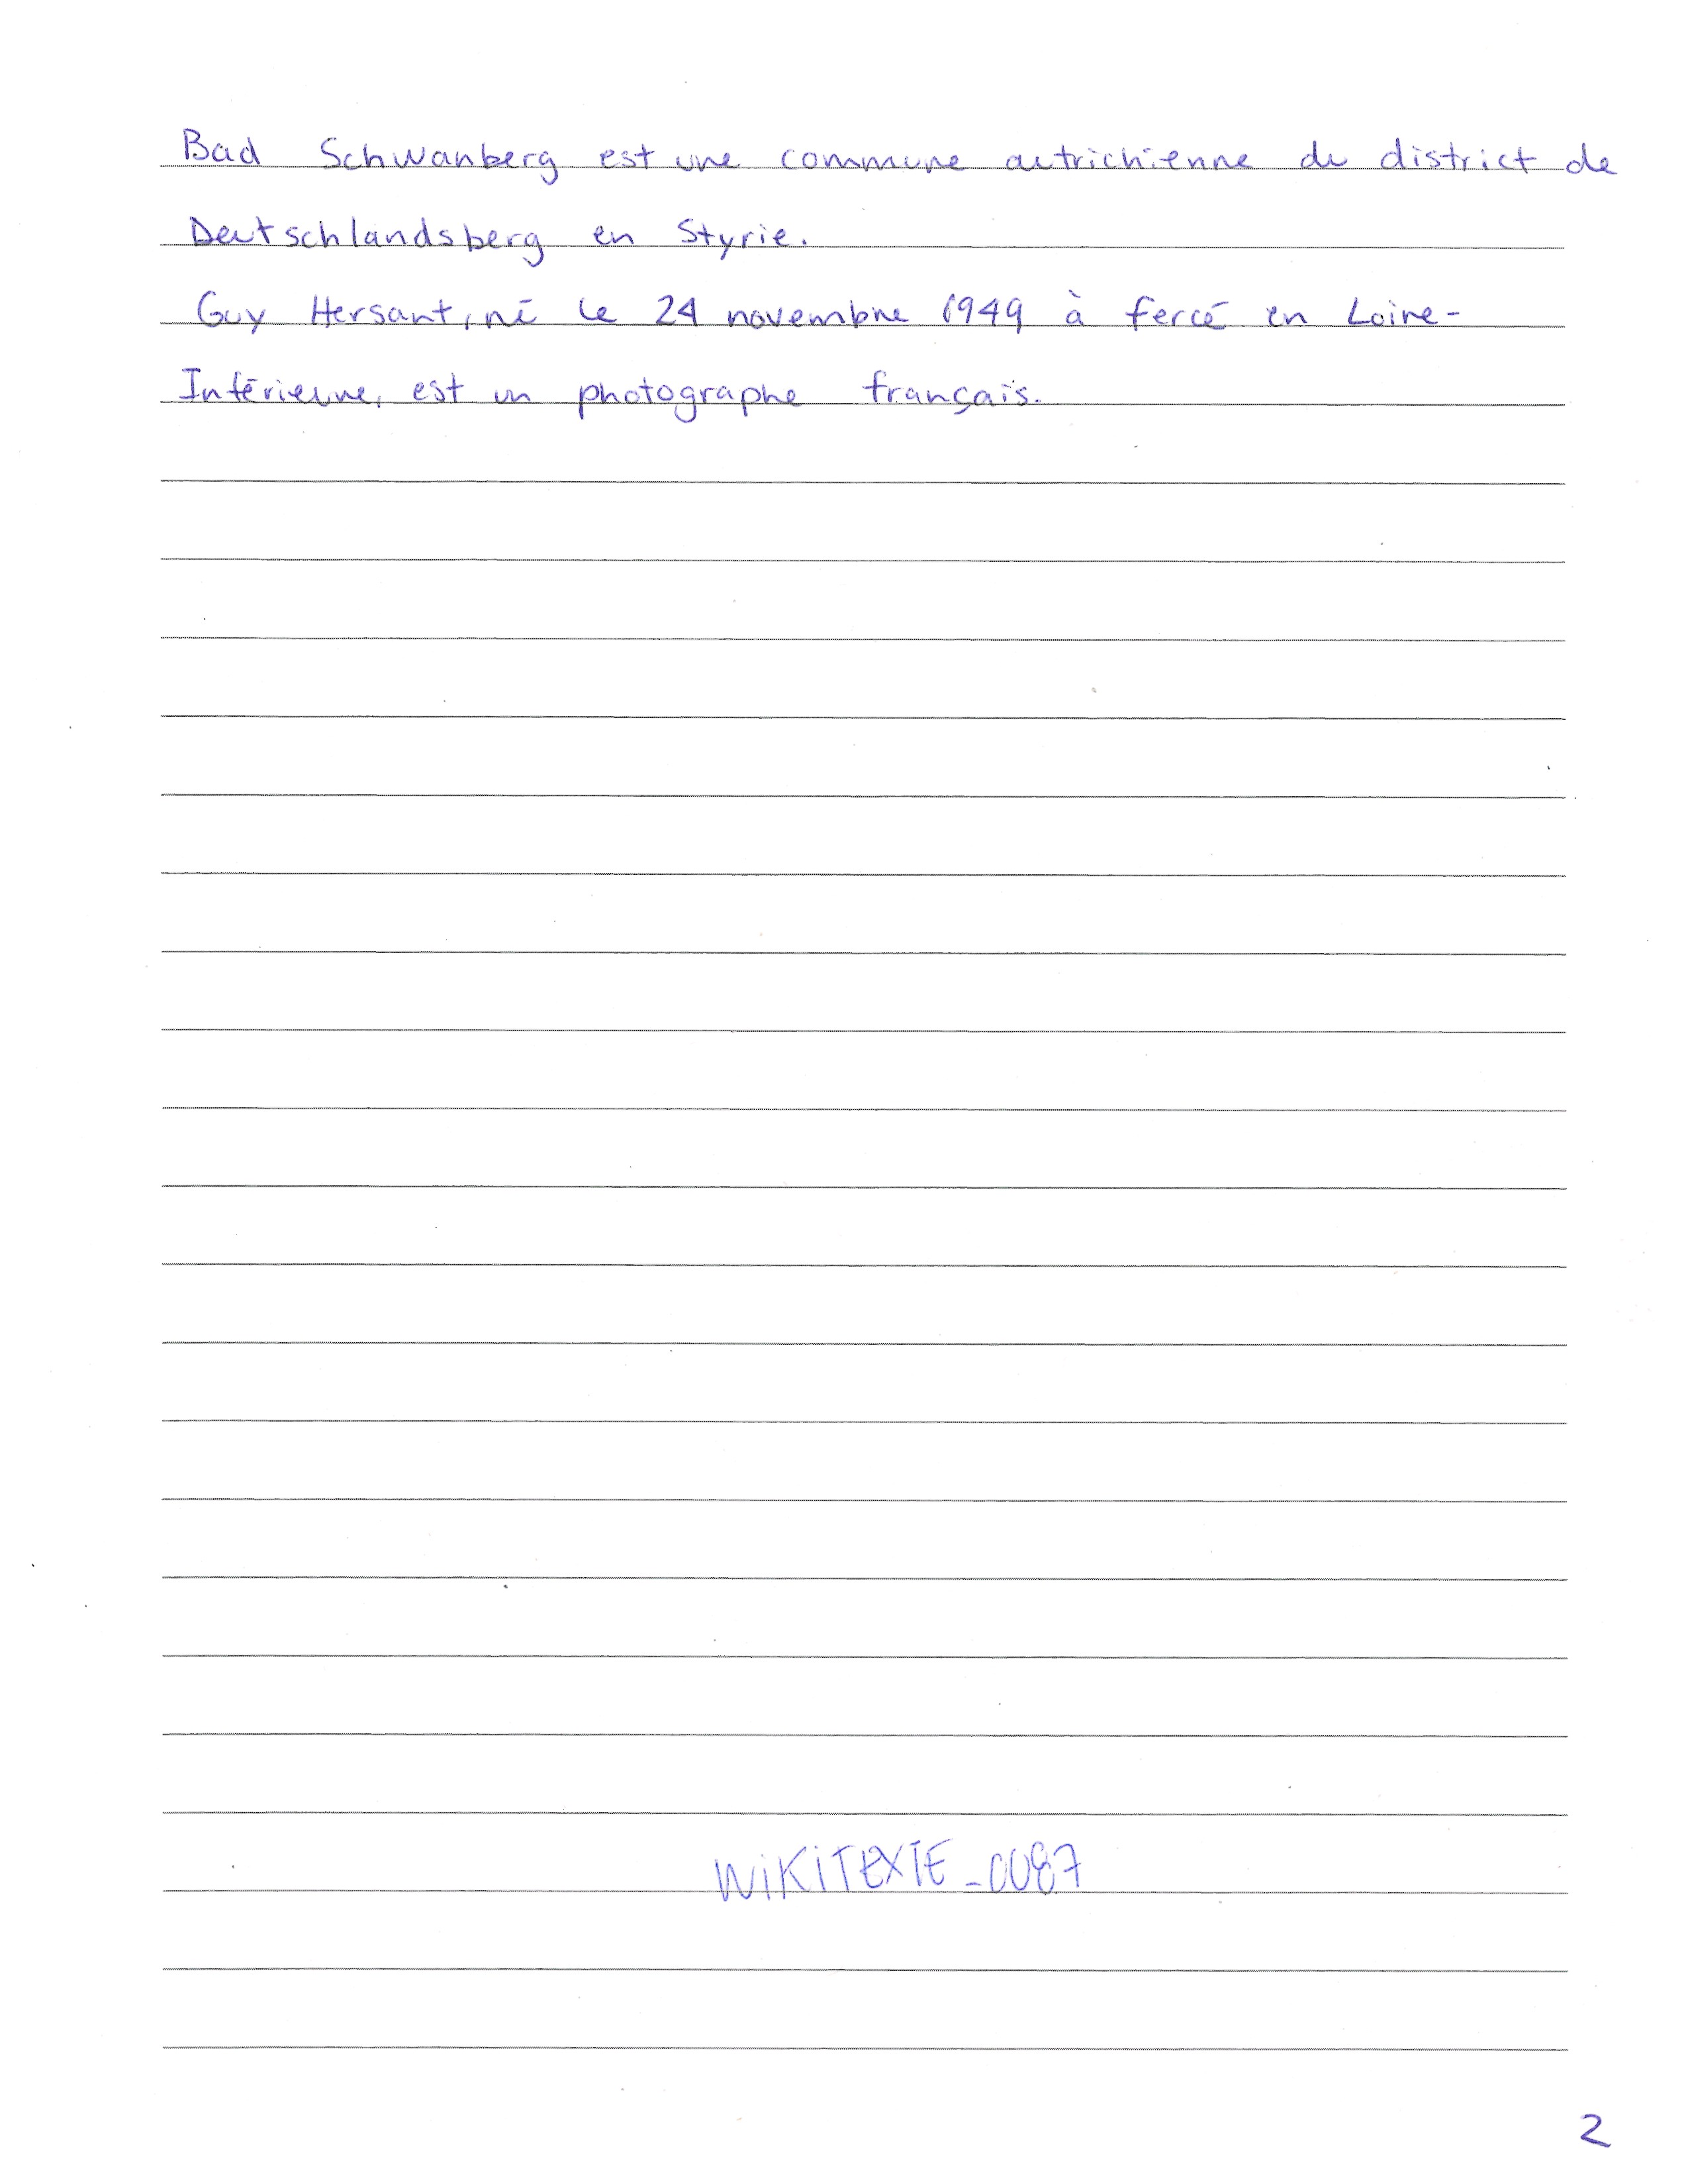 Bad Schwanberg est une commune autrichienne du district de
Deutschlandsberg en Styrie.
Guy Hersant, né le 24 novembre 1949 à fercé en Loire-
Inférieure, est un photographe français.
WiKiTEXTE_0087
2